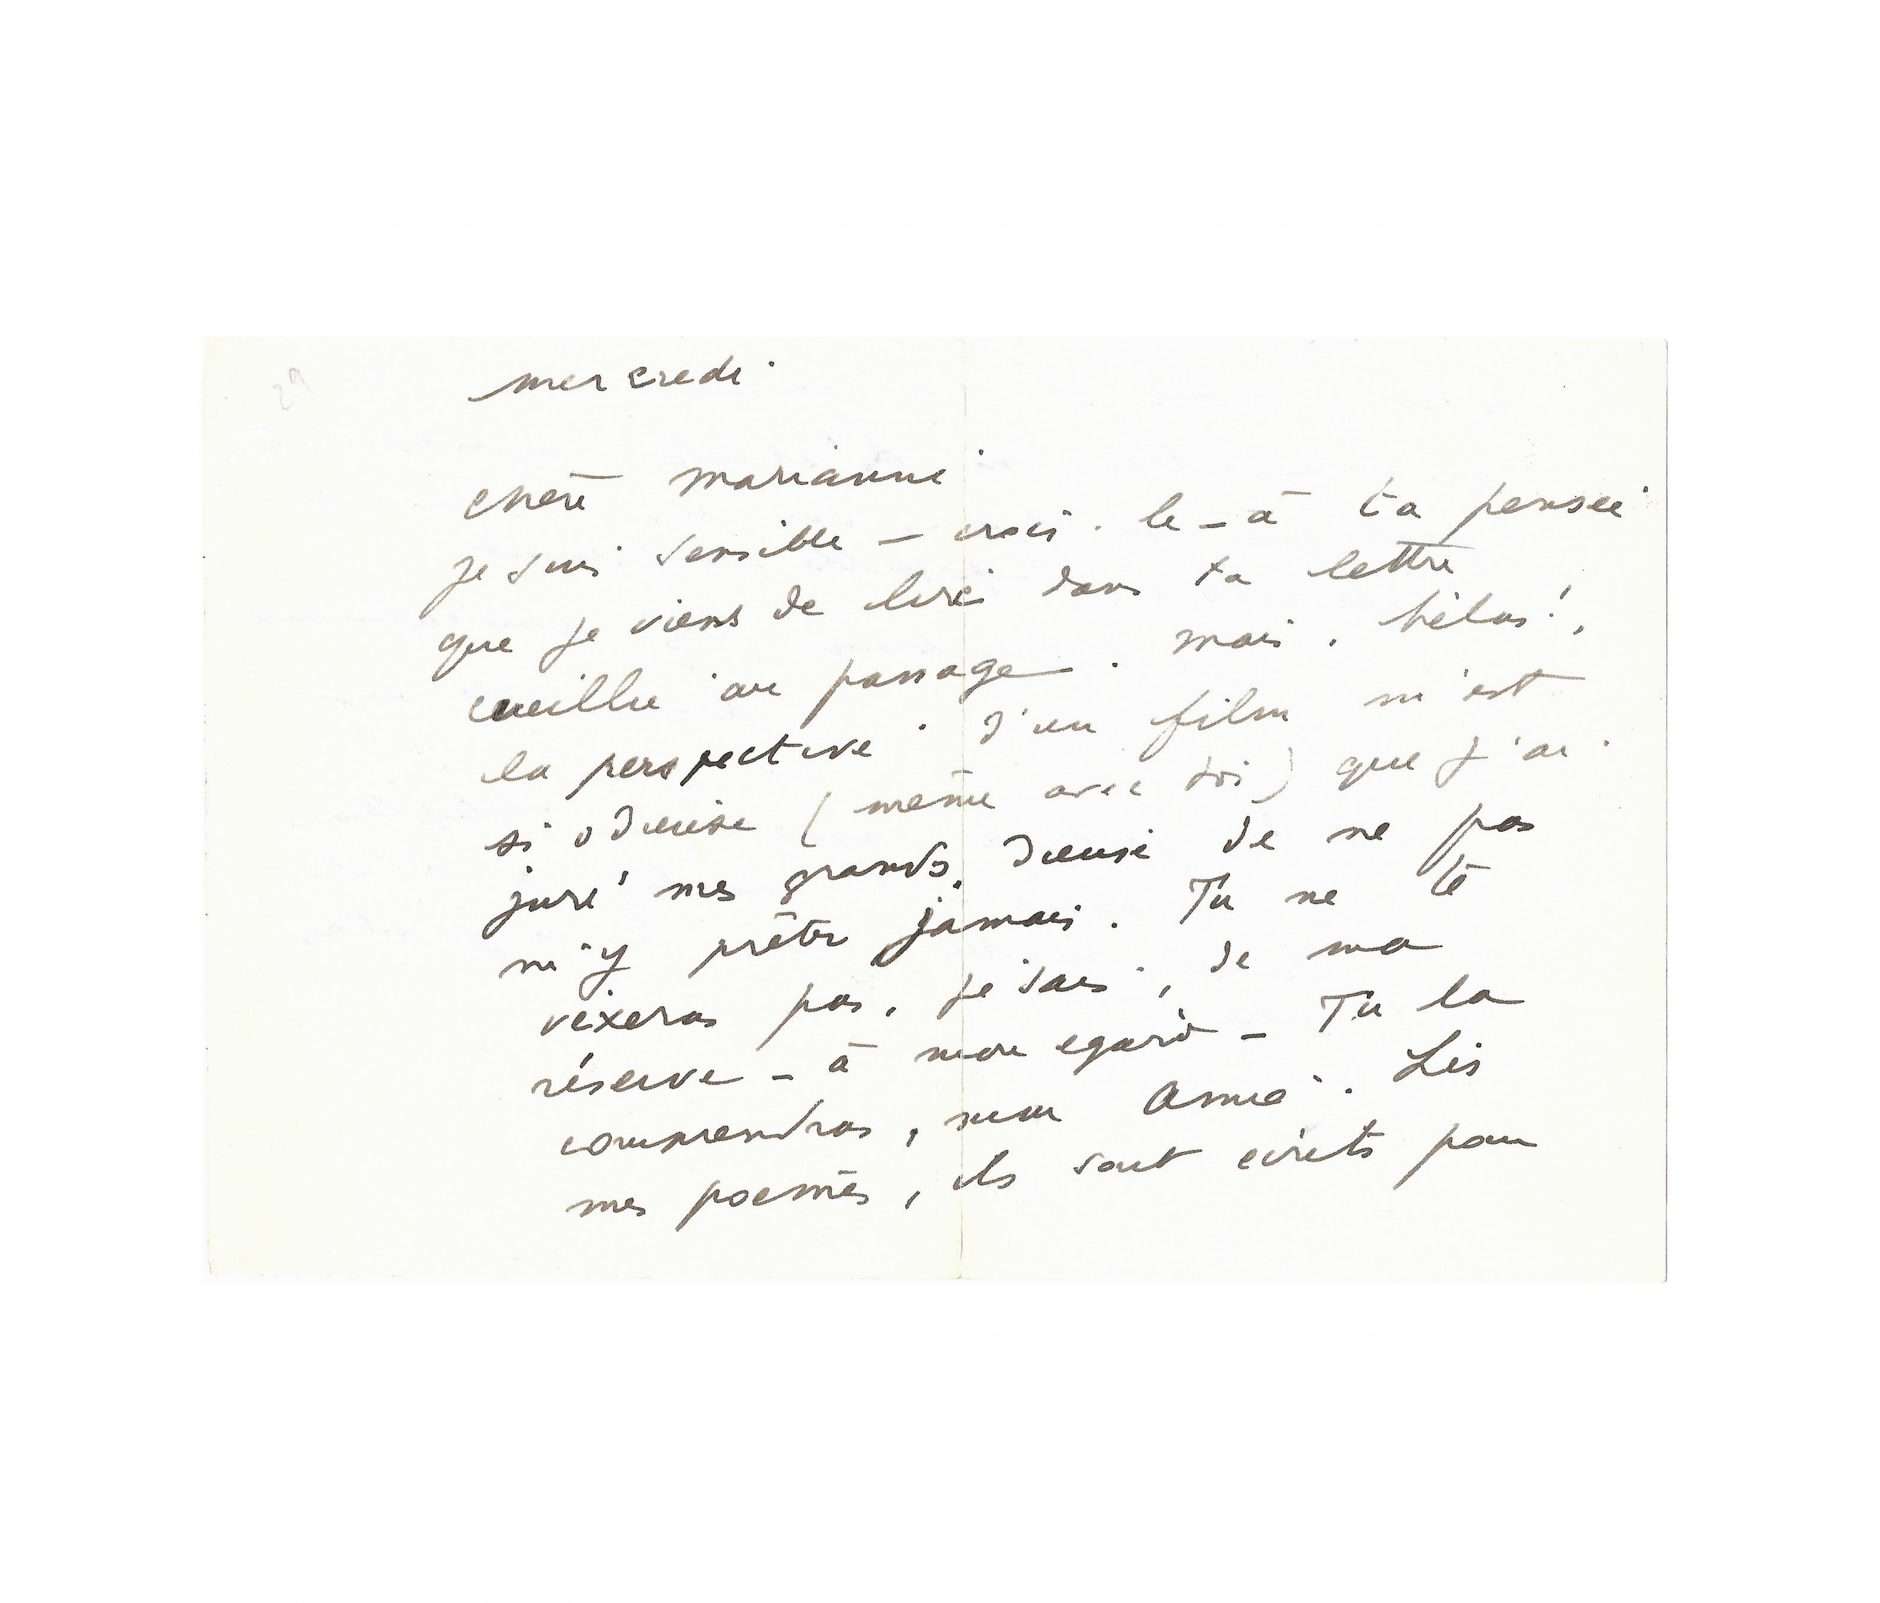 mercredi.
chère Marianne
je suis sensible – crois-le – à ta pensée
que je viens de lire dans ta lettre
cueillie au passage. Mais, hélas!,
la perspective d'un film m'est
si odieuse (même avec toi) que j'ai
juré mes grands dieux de ne pas
m'y prêter jamais. Tu ne te
vexeras pas, je sais, de ma
réserve – à mon égard – Tu la
comprendras, mon Amie. Lis
mes poèmes, ils sont écrits pour